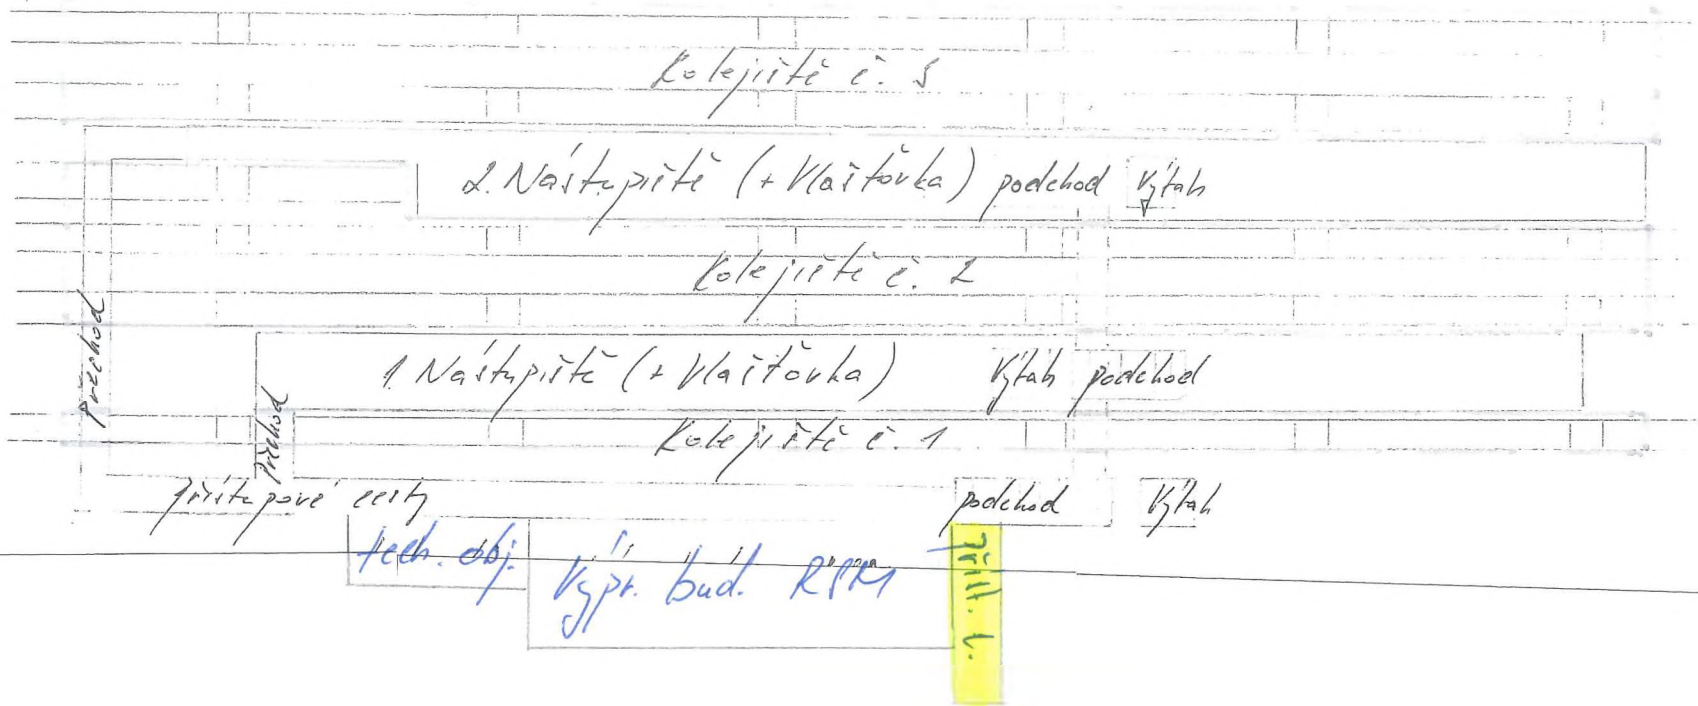 Kolejiště č. 3
2. Nástupiště (+ Vlaštovka) podchod Výtah
Kolejiště č. 2
Přechod
1. Nástupiště (+ Vlaštovka) Výtah podchod
Přechod
Kolejiště č. 1
Přístupové cesty podchod Výtah
tech. obj.
Výpr. bud. RSM